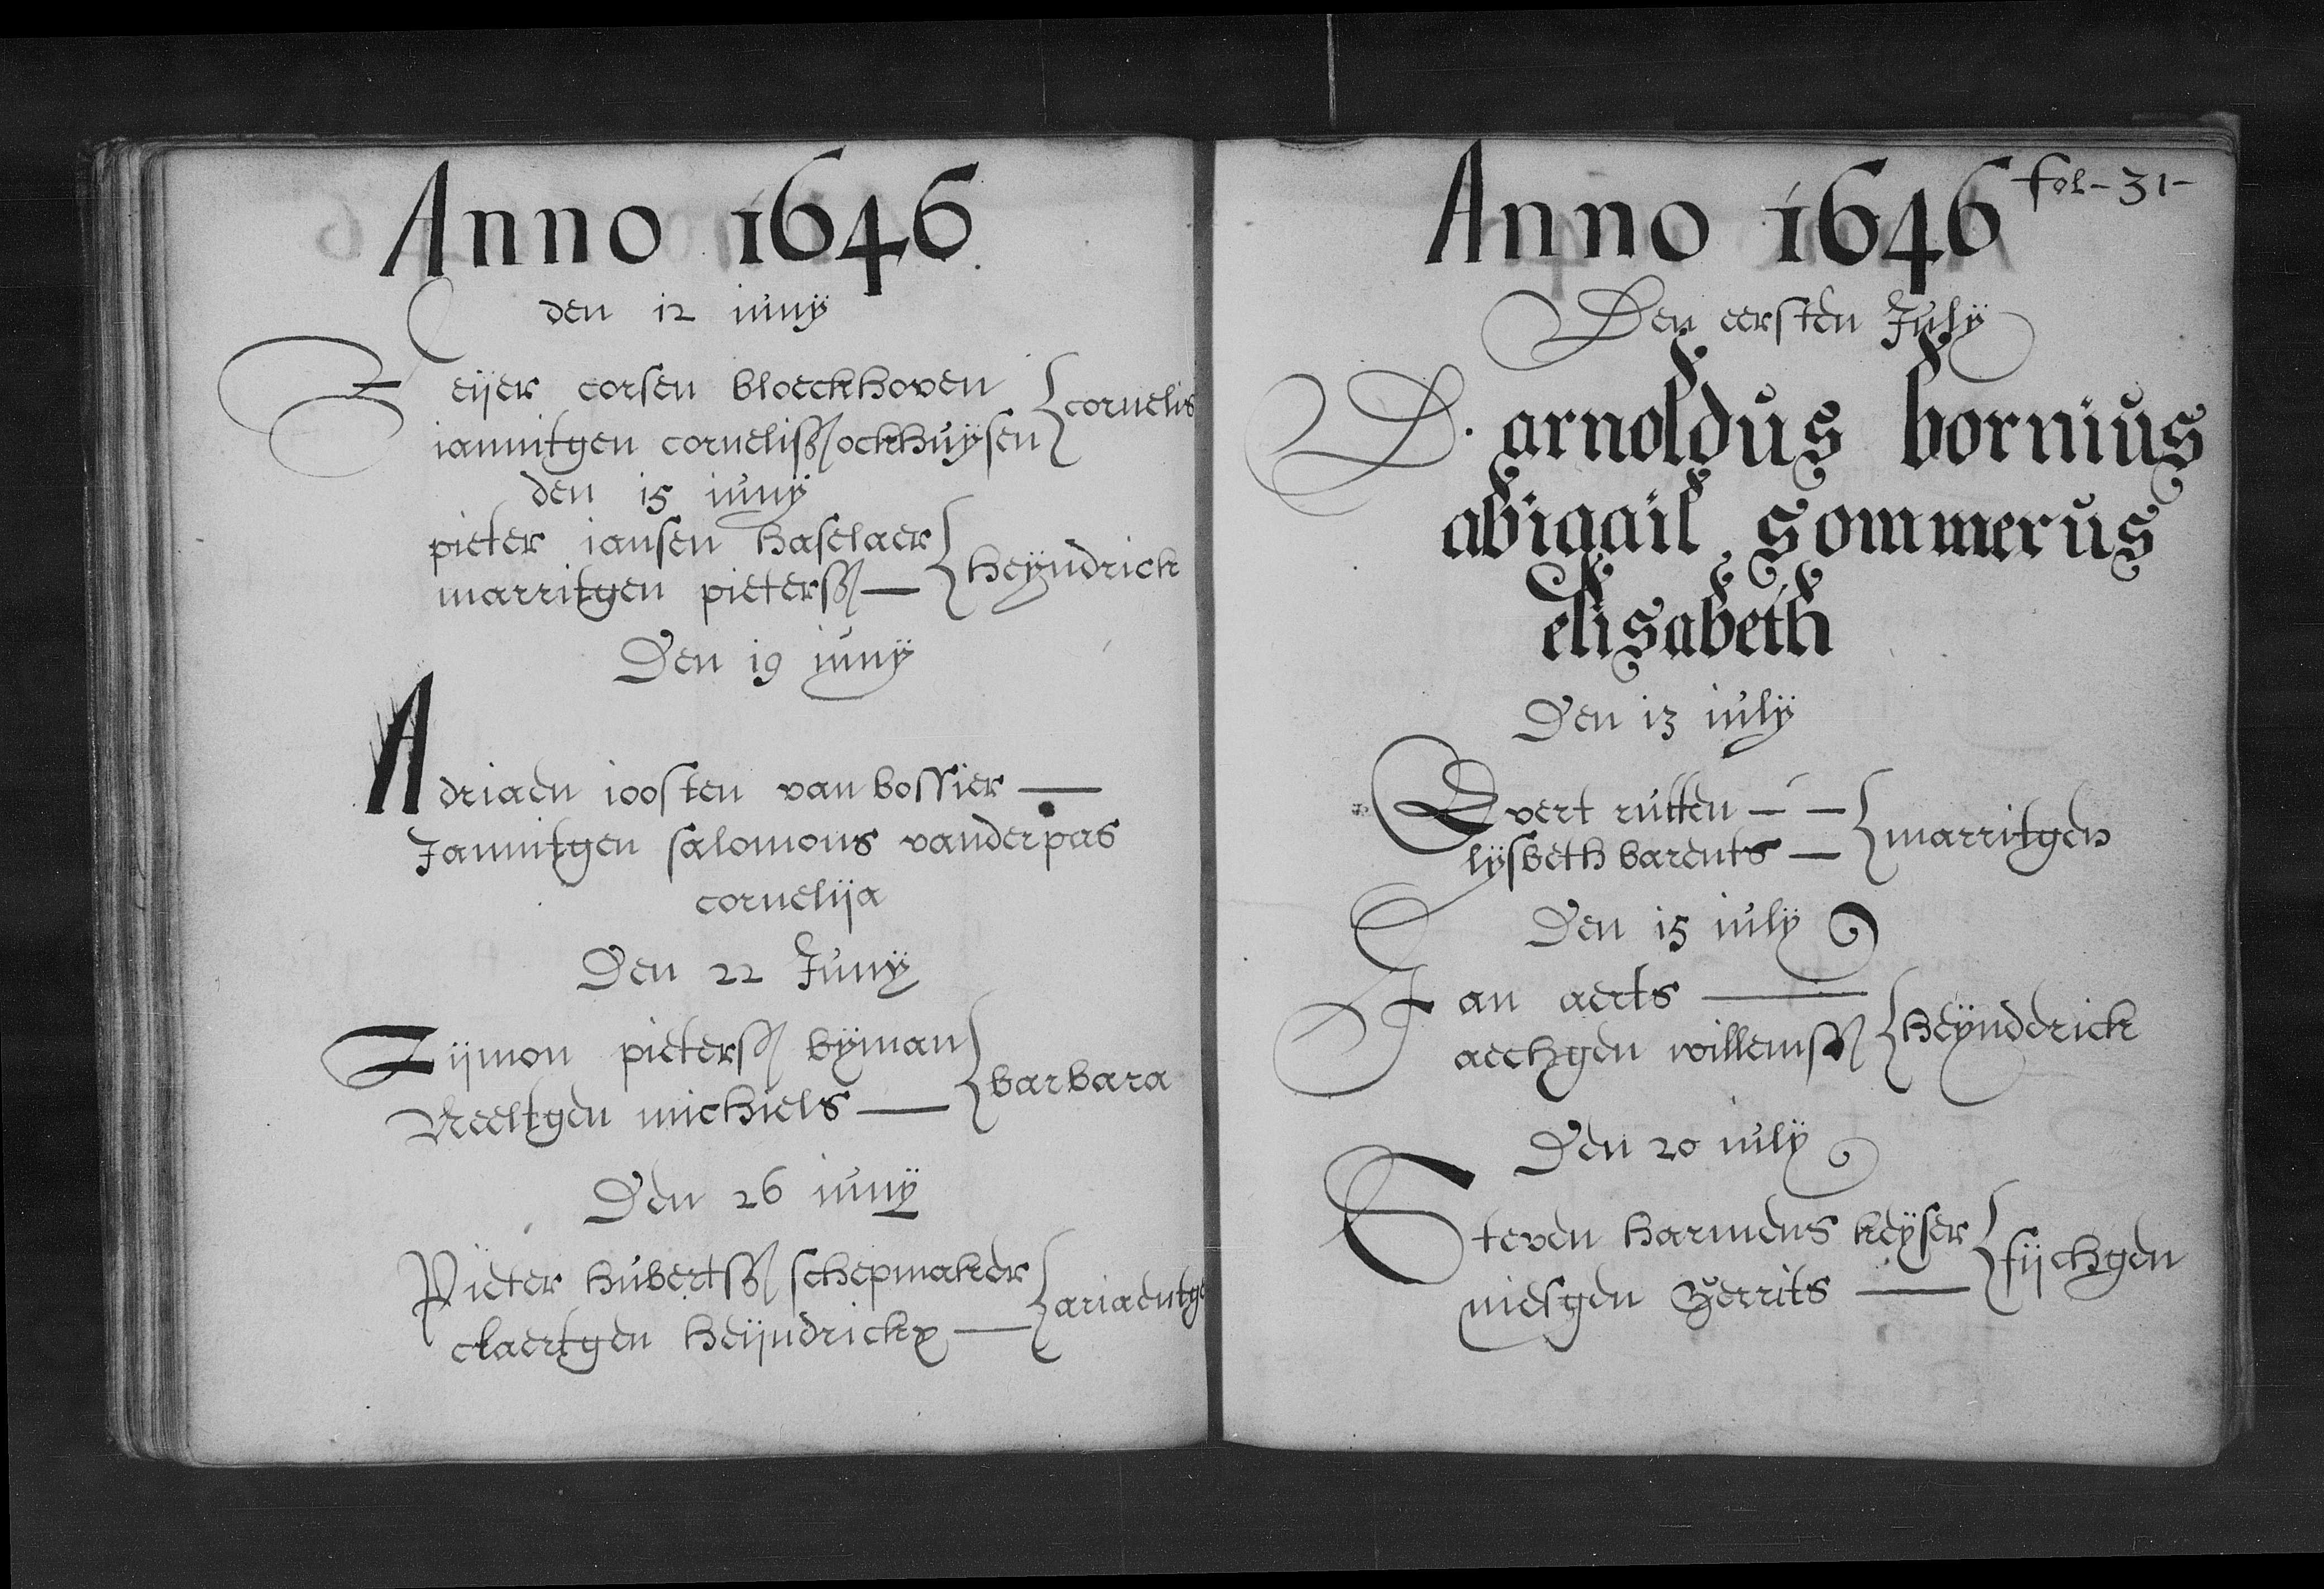 Anno 1646
den 12 iunij
Zeijer corsen bloeckhoven
iannitgen cornelisß ockhuijsen
cornelis
den 15 iunij
pieter iansen haselaer
marritgen pietersß —
heijndrick
Den 19 iunij
Adriaen ioosten van bossier —
Jannitgen salomons vanderpas
cornelija
Den 22 Junij
Zijmon pietersß bijman
Neeltgen michiels —
barbara
Den 26 iunij
Pieter hubertsß schepmaker
claertgen heijndrickx —
ariaentge
Anno 1646
fol-31-
Den eersten July
D. arnoldus bornius
abigail sommerus
elisabeth
Den 13 iulij
Evert rutten — —
lijsbeth barents —
marritgen
Den 15 iulij
Jan aerts —
aechgen willemsß
heijnderick
Den 20 iulij
Steven harmens keijser
niesgen Gerrits —
fijchgen